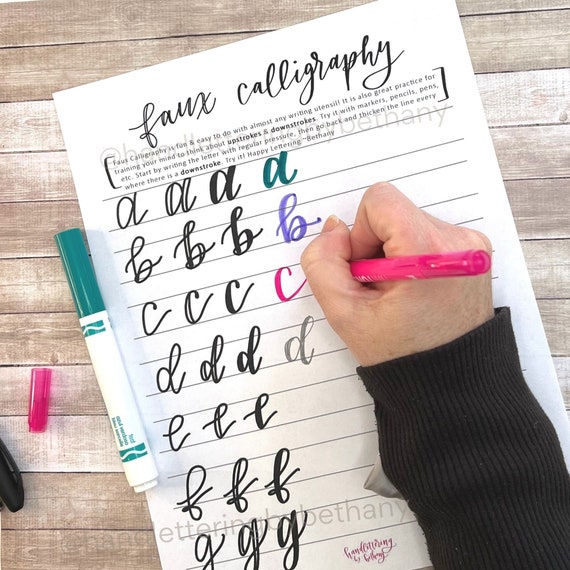 faux calligraphy
Faux Calligraphy is fun & easy to do with almost any writing utensil! It is also great practice for
training your mind to think about upstrokes & downstrokes. Try it with markers, pencils, pens,
etc. Start by writing the letter with regular pressure, then go back and thicken the line every
where there is a downstroke. Try it! Happy Lettering. ~Bethany
a a a a
b b b b
c c c c
d d d d
e e e
f f f
g g g
handlettering
by bethany